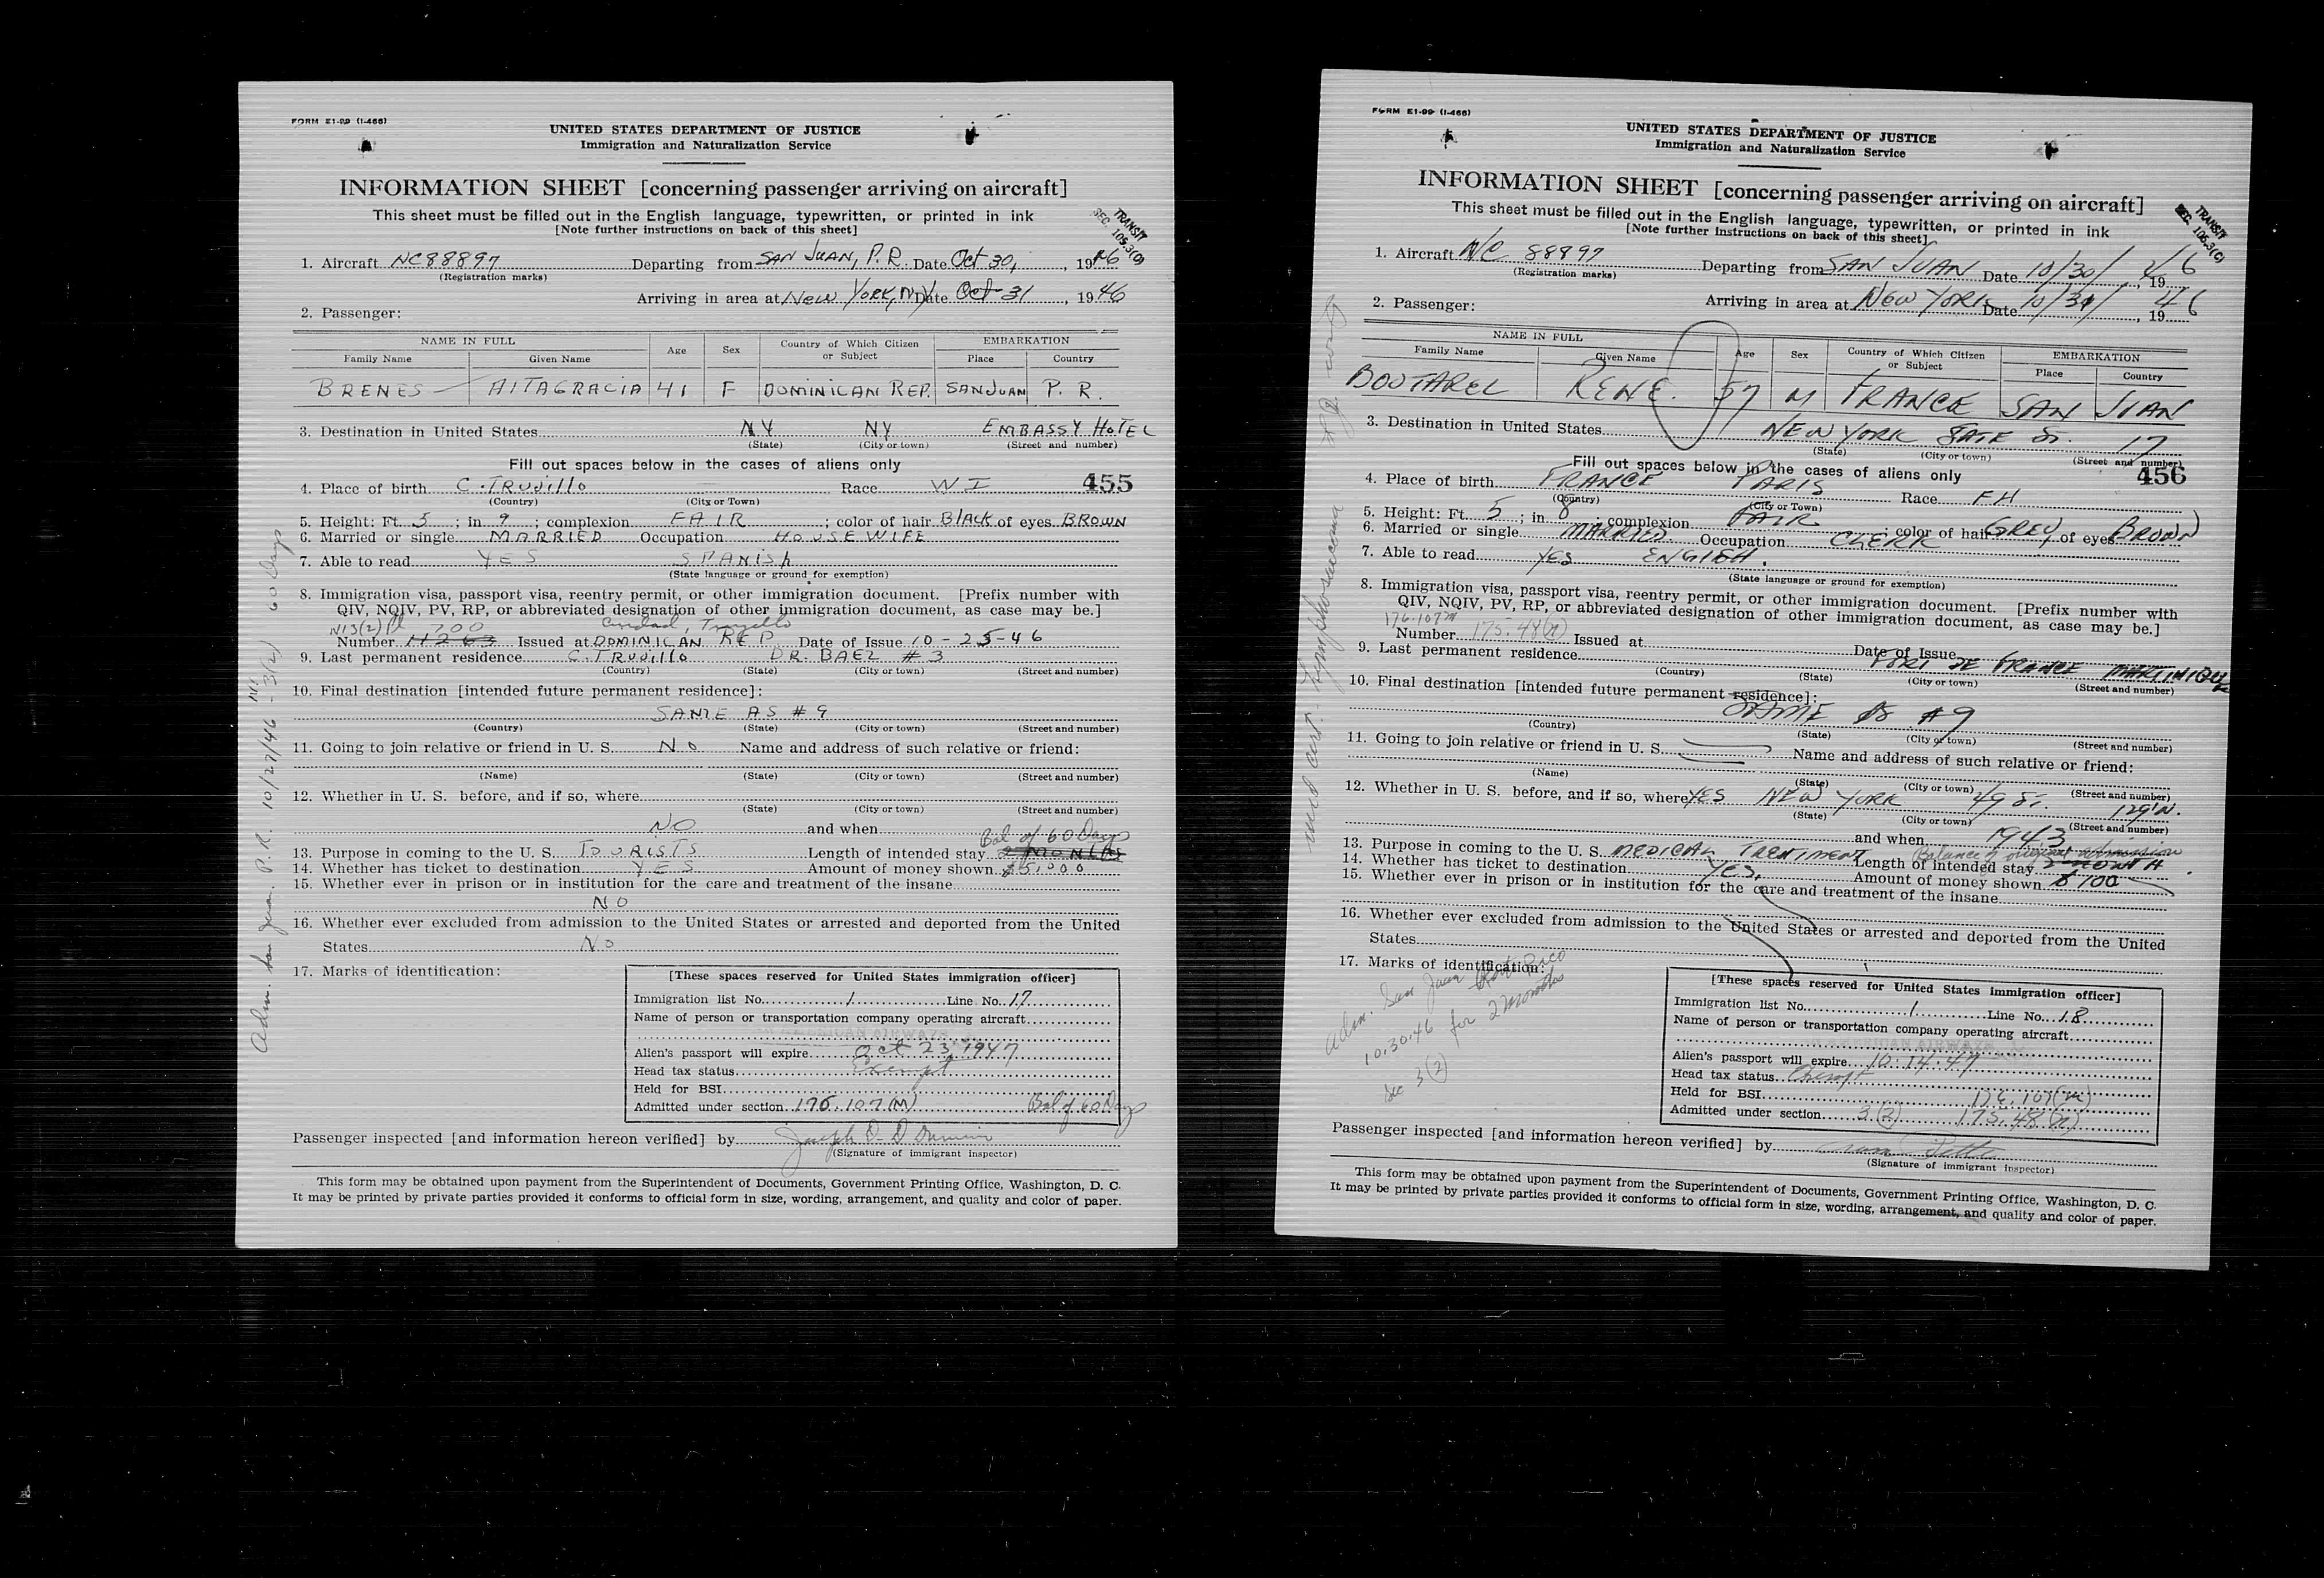 FORM E1-99 (I-466)
UNITED STATES DEPARTMENT OF JUSTICE
Immigration and Naturalization Service
INFORMATION SHEET [concerning passenger arriving on aircraft]
This sheet must be filled out in the English language, typewritten, or printed in ink
[Note further instructions on back of this sheet]
TRANSIT
SEC. 105.3(C)
1. Aircraft NC88897 Departing from SAN JUAN, P.R. Date Oct 30, , 1946
(Registration marks)
Arriving in area at New York, NY Date Oct-31 , 1946
2. Passenger:
NAME IN FULL Age Sex Country of Which Citizen or Subject EMBARKATION
Family Name Given Name Place Country
BRENES AlTAGRACIA 41 F DOMINICAN REP. SAN JUAN P. R.
3. Destination in United States NY NY EMBASSY HOTEL
(State) (City or town) (Street and number)
Fill out spaces below in the cases of aliens only
455
4. Place of birth C. TRUJillo Race W I
(Country) (City or Town)
5. Height: Ft. 5 ; in 9 ; complexion FAIR ; color of hair BlACK of eyes BROWN
6. Married or single MARRIED Occupation HOUSEWIFE
7. Able to read YES SPANISh
(State language or ground for exemption)
8. Immigration visa, passport visa, reentry permit, or other immigration document. [Prefix number with
QIV, NQIV, PV, RP, or abbreviated designation of other immigration document, as case may be.]
700 Ciudad, Trujillo
Number Issued at DOMINICAN REP. Date of Issue 10-25-46
9. Last permanent residence C. TRUJillo DR. BAEZ # 3
(Country) (State) (City or town) (Street and number)
10. Final destination [intended future permanent residence]:
SAME AS # 9
(Country) (State) (City or town) (Street and number)
11. Going to join relative or friend in U. S. No Name and address of such relative or friend:
(Name) (State) (City or town) (Street and number)
12. Whether in U. S. before, and if so, where
(State) (City or town) (Street and number)
NO and when
Bal of 60 Days
13. Purpose in coming to the U. S. TOURISTS Length of intended stay 2 MONTHS
14. Whether has ticket to destination YES Amount of money shown $5,000
15. Whether ever in prison or in institution for the care and treatment of the insane
NO
16. Whether ever excluded from admission to the United States or arrested and deported from the United
States No
17. Marks of identification:
[These spaces reserved for United States immigration officer]
Immigration list No. 1 Line No. 17
Name of person or transportation company operating aircraft
AMERICAN AIRWAYS
Alien's passport will expire Oct 23, 1947
Head tax status Exempt
Held for BSI
Admitted under section 176.107(M) Bal of 60 Days
Passenger inspected [and information hereon verified] by Joseph
(Signature of immigrant inspector)
This form may be obtained upon payment from the Superintendent of Documents, Government Printing Office, Washington, D. C.
It may be printed by private parties provided it conforms to official form in size, wording, arrangement, and quality and color of paper.
Adm. San Juan P.R. 10/27/46 - 3(2) 60 Days
FORM E1-99 (I-466)
UNITED STATES DEPARTMENT OF JUSTICE
Immigration and Naturalization Service
INFORMATION SHEET [concerning passenger arriving on aircraft]
This sheet must be filled out in the English language, typewritten, or printed in ink
[Note further instructions on back of this sheet]
TRANSIT
SEC. 105.3(C)
1. Aircraft NC 88897 Departing from SAN JUAN Date 10/30/ , 1946
(Registration marks)
Arriving in area at NEW YORK Date 10/31/ , 1946
2. Passenger:
NAME IN FULL Age Sex Country of Which Citizen or Subject EMBARKATION
Family Name Given Name Place Country
BOUTAREL RENE. 57 M FRANCE SAN JUAN
3. Destination in United States NEW YORK STATE ST. 17
(State) (City or town) (Street and number)
Fill out spaces below in the cases of aliens only
456
4. Place of birth FRANCE PARIS Race FH
(Country) (City or Town)
5. Height: Ft. 5 ; in 8 ; complexion FAIR ; color of hair GREY, of eyes BROWN
6. Married or single MARRIED. Occupation CLERK
7. Able to read YES ENGLISH.
(State language or ground for exemption)
8. Immigration visa, passport visa, reentry permit, or other immigration document. [Prefix number with
QIV, NQIV, PV, RP, or abbreviated designation of other immigration document, as case may be.]
176.107M
Number 175.48(a) Issued at Date of Issue
9. Last permanent residence FORT DE FRANCE MARTINIQUE
(Country) (State) (City or town) (Street and number)
10. Final destination [intended future permanent residence]:
SAME AS #9
(Country) (State) (City or town) (Street and number)
11. Going to join relative or friend in U. S. Name and address of such relative or friend:
(Name) (State) (City or town) (Street and number)
12. Whether in U. S. before, and if so, where YES NEW YORK 49 ST. 129 W.
(State) (City or town) (Street and number)
and when 1943
Balance of original admission
13. Purpose in coming to the U. S. MEDICAL TREATMENT Length of intended stay MONTH
14. Whether has ticket to destination YES. Amount of money shown $ 100
15. Whether ever in prison or in institution for the care and treatment of the insane
16. Whether ever excluded from admission to the United States or arrested and deported from the United
States
17. Marks of identification:
Adm. San Juan Porto Rico
10.30.46 for 2 months
Sec 3(2)
[These spaces reserved for United States immigration officer]
Immigration list No. 1 Line No. 18
Name of person or transportation company operating aircraft
AMERICAN AIRWAYS
Alien's passport will expire 10.14.47
Head tax status Exempt
Held for BSI 176.107(m)
Admitted under section 3(2) 175.48(a)
Passenger inspected [and information hereon verified] by
(Signature of immigrant inspector)
This form may be obtained upon payment from the Superintendent of Documents, Government Printing Office, Washington, D. C.
It may be printed by private parties provided it conforms to official form in size, wording, arrangement, and quality and color of paper.
med cert. - Lymphosarcoma